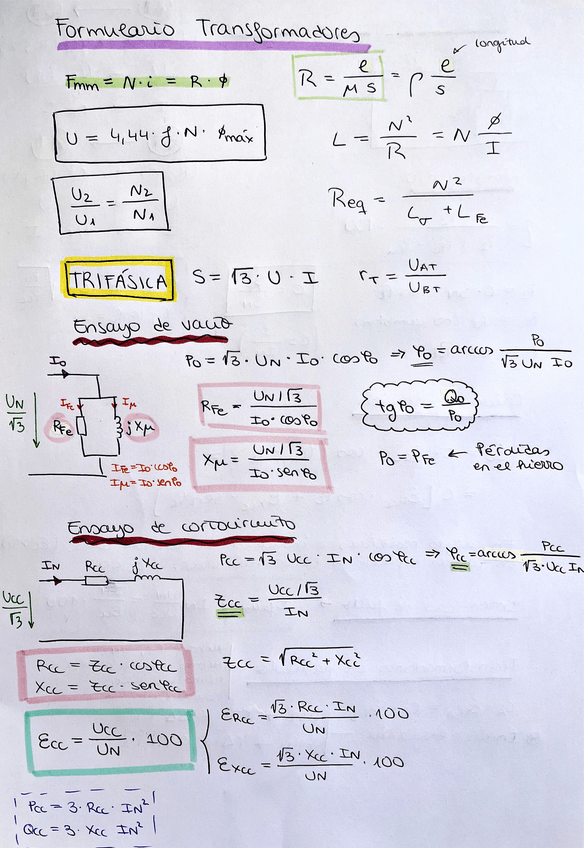 Formulario Transformadores
Fmm = N·i = R·ϕ
R = e/(μ s) = ρ e/s
longitud
U = 4,44·f·N·ϕmáx
L = N²/R = N ϕ/I
U2/U1 = N2/N1
Req = N²/(Lσ + LFe)
TRIFÁSICA
S = √3·U·I
rT = UAT/UBT
Ensayo de vacío
Po = √3·UN·Io·cosφo ⇒ φo = arccos Po/(√3 UN Io)
Io
UN/√3
IFe
Iμ
RFe
jXμ
IFe=Io·cosφo
Iμ=Io·senφo
RFe = (UN/√3)/(Io·cosφo)
tgφo = Qo/Po
Xμ = (UN/√3)/(Io·senφo)
Po = PFe ← Pérdidas
en el hierro
Ensayo de cortocircuito
IN
Rcc
jXcc
Ucc/√3
Pcc = √3 Ucc·IN·cosφcc ⇒ φcc = arccos Pcc/(√3·Ucc IN
Zcc = (Ucc/√3)/IN
Rcc = Zcc·cosφcc
Xcc = Zcc·senφcc
Zcc = √(Rcc² + Xcc²)
Ecc = Ucc/UN · 100
ERcc = (√3·Rcc·IN)/UN · 100
EXcc = (√3·Xcc·IN)/UN · 100
Pcc = 3·Rcc·IN²
Qcc = 3·Xcc IN²